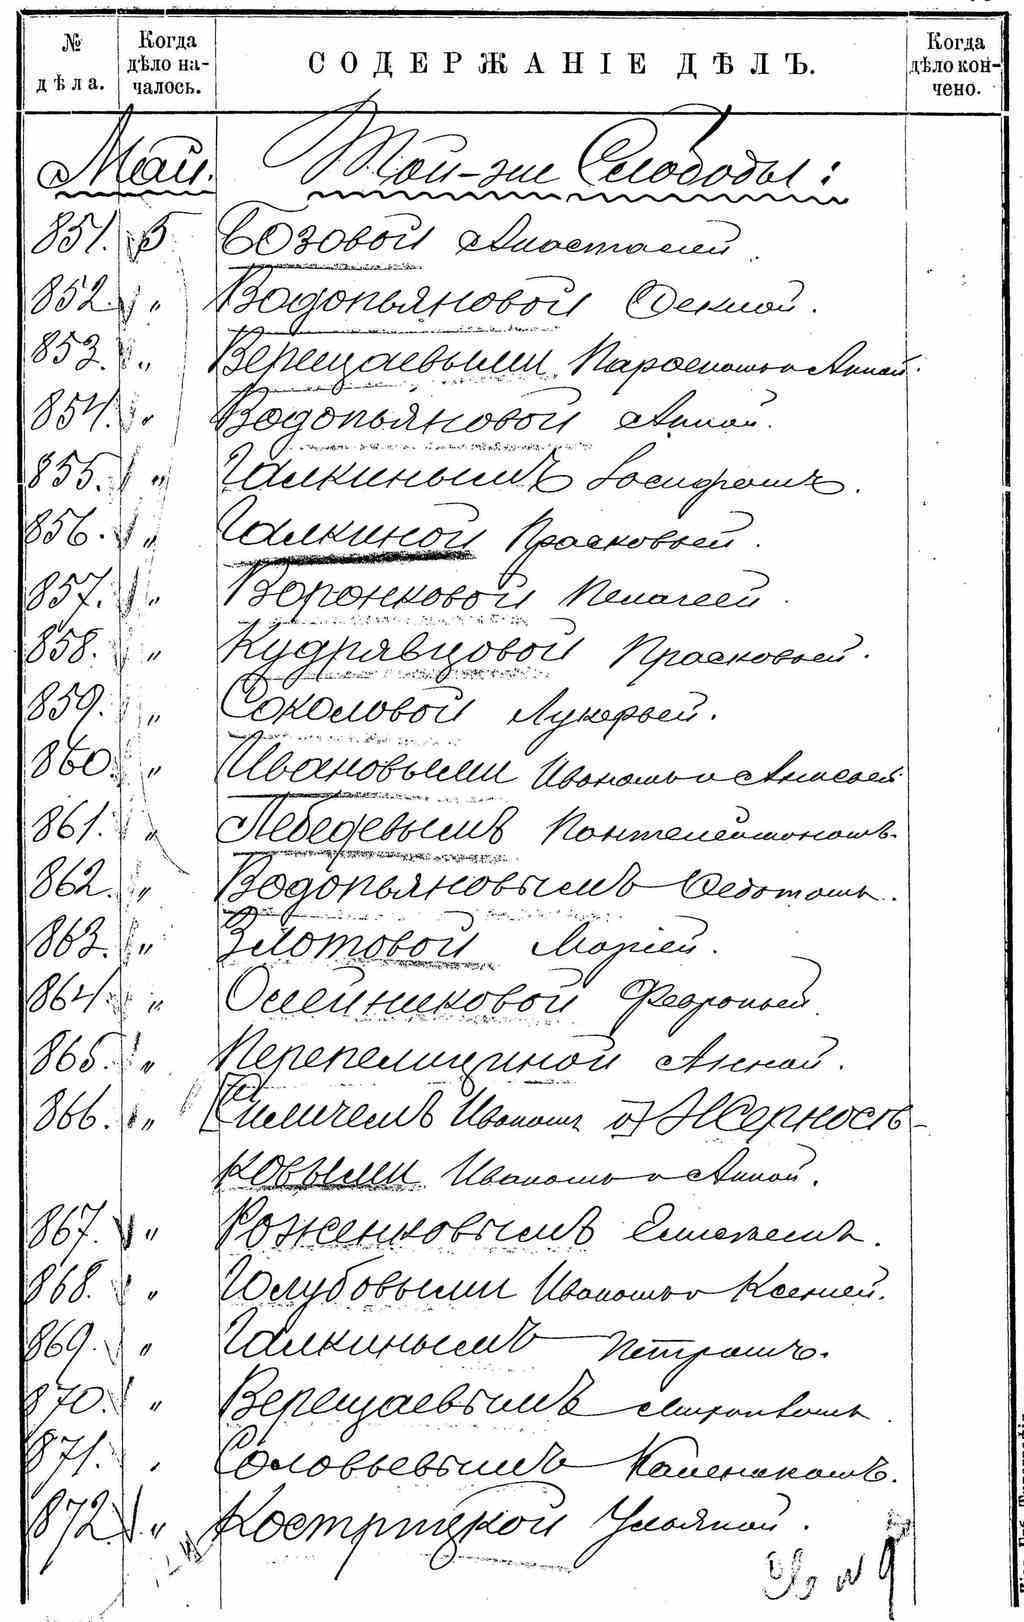 № дѣла. Когда дѣло началось. СОДЕРЖАНІЕ ДѢЛЪ. Когда дѣло кончено.
Май. Той-же Слободы:
851. 5 Бозовой Анастасіей
852. „ Водопьяновой Феклой.
853. „ Верещаевыми Парасковь и Анной.
854. „ Водопьяновой Анной.
855. „ Галкинымъ Іосифомъ.
856. „ Галкиной Прасковьей.
857. „ Воронковой Пелагеей.
858. „ Кудрявцовой Прасковьей.
859. „ Соколовой Лукерьей.
860. „ Ивановыми Иваномъ и Алексеей
861. „ Лебедевымъ Пантелеймономъ.
862. „ Водопьяновымъ Федотомъ.
863. „ Злотовой Маріей.
864. „ Олейниковой Февроньей.
865. „ Перепелициной Анной.
866. „ Силичемъ Иваномъ Жерность-
ковыми Иваномъ и Анной.
867. „ Роженковымъ Елисеемъ.
868. „ Голубовыми Иваномъ и Ксеніей.
869. „ Галкинымъ Петромъ.
870. „ Верещаевымъ
871. „ Соловьевымъ
872. „ Кострицкой Ульяной.